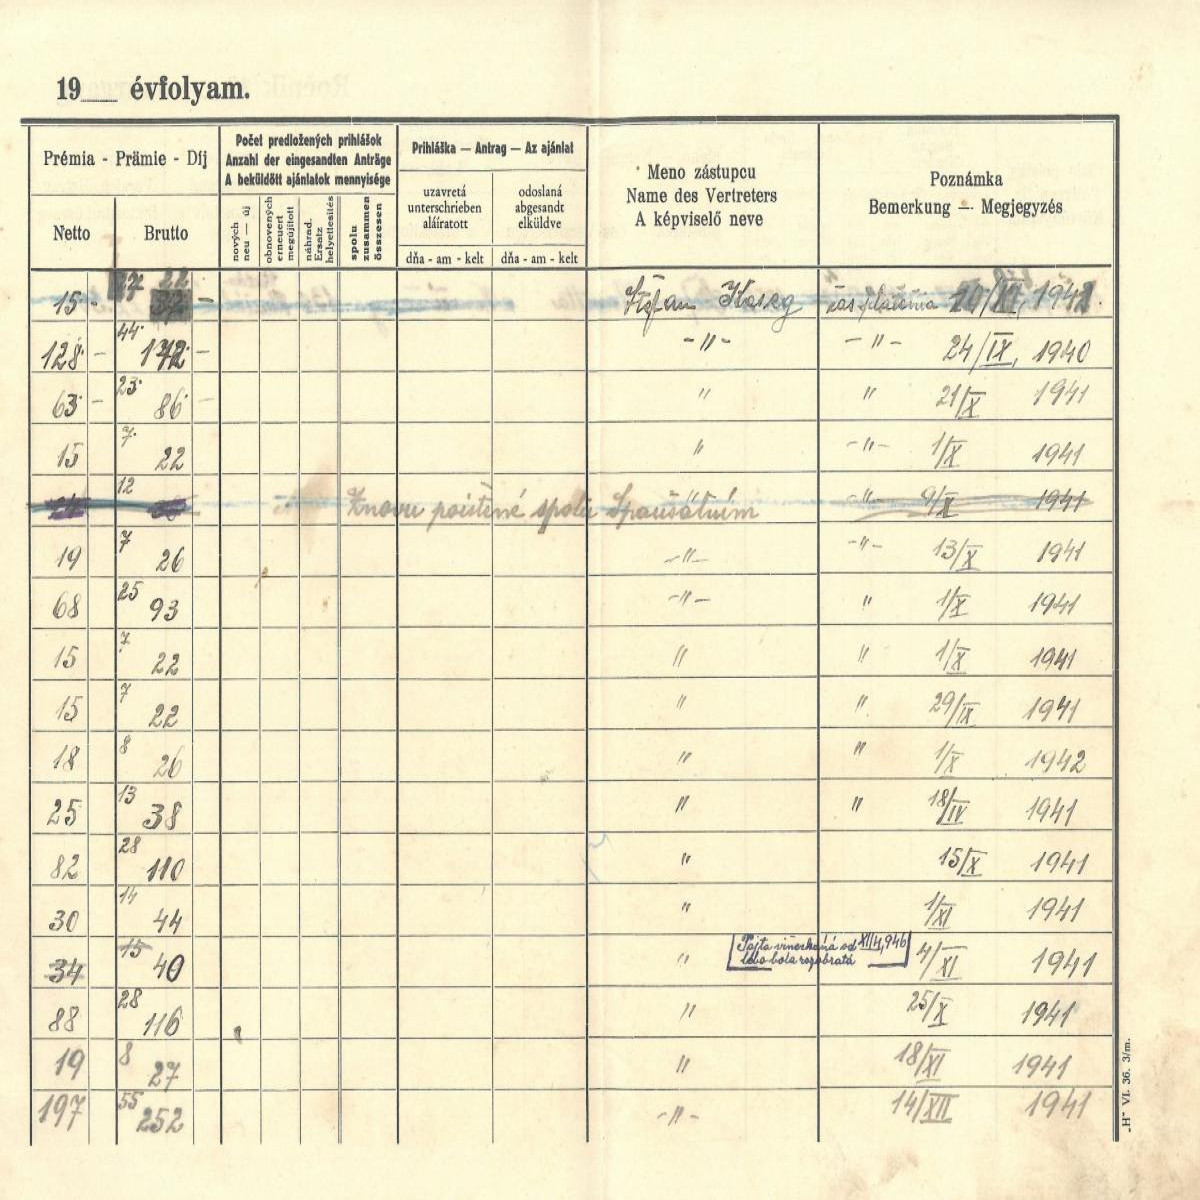 19___ évfolyam.
Prémia - Prämie - Díj
Netto
Brutto
Počet predložených prihlášok
Anzahl der eingesandten Anträge
A beküldött ajánlatok mennyisége
nových
neu — új
obnovených
erneuert
megújított
náhrad.
Ersatz
helyettesítés
spolu
zusammen
összesen
Prihláška — Antrag — Az ajánlat
uzavretá
unterschrieben
aláíratott
odoslaná
abgesandt
elküldve
dňa - am - kelt
dňa - am - kelt
Meno zástupcu
Name des Vertreters
A képviselő neve
Poznámka
Bemerkung — Megjegyzés
15 - 22 - Štefan
128 - 44 172 - -"- -"- 24/IX, 1940
63 - 23 86 - " " 21/X 1941
15 7 22 " -"- 1/X 1941
12 Znovu poistené spolu -"- 9/X 1941
19 7 26 -"- -"- 13/X 1941
68 25 93 -"- " 1/X 1941
15 7 22 " " 1/X 1941
15 7 22 " " 29/IX 1941
18 8 26 " " 1/X 1942
25 13 38 " " 18/IV 1941
82 28 110 " 15/X 1941
30 14 44 " 1/XI 1941
34 15 40 " 4/XI 1941
lebo bola
88 28 116 " 25/X 1941
19 8 27 " 18/XI 1941
197 55 252 -"- 14/XII 1941
„H" VI. 36. 3/m.